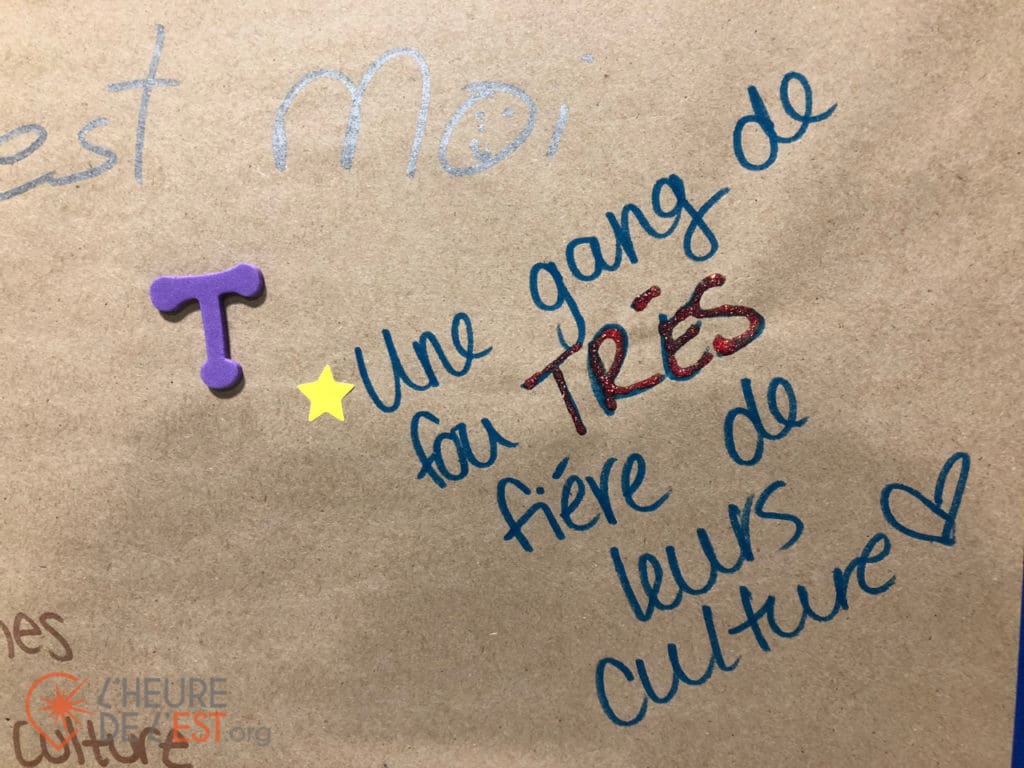 est moi
T
Une gang de
fou TRÉS
fiére de
leurs
culture
nes
L'HEURE
DE L'EST.org
culture